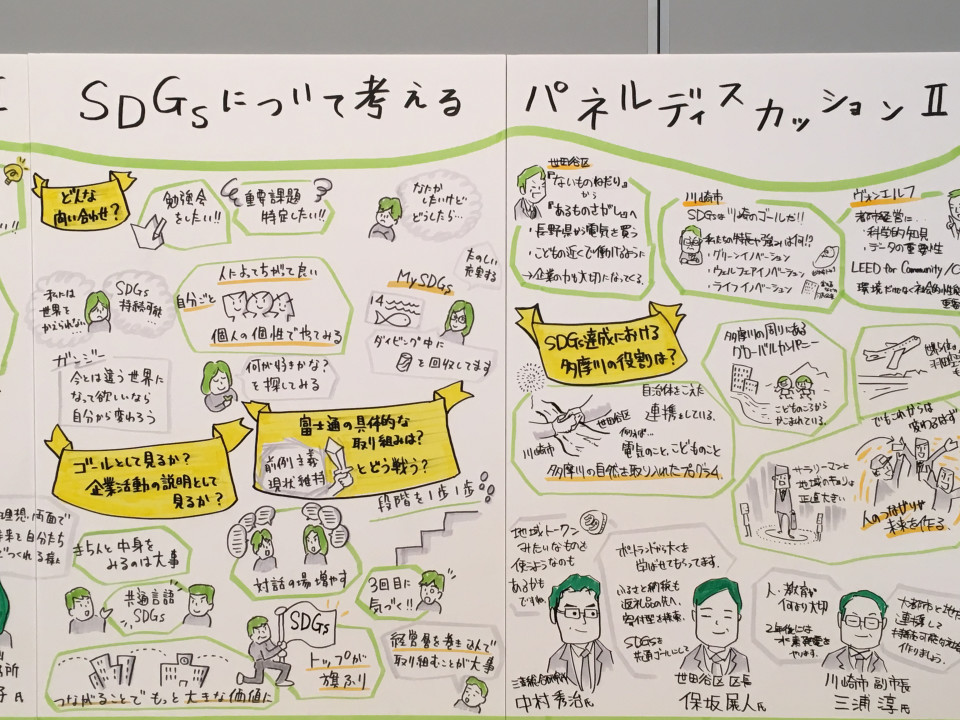 SDGsについて考える
どんな
問い合わせ?
勉強会
をしたい!!
重要課題
特定したい!!
なにか
したいけど
どうしよう…
私には
世界を
かえられない…
SDGs
持続可能
人によってちがって良い
自分ごと
個人の個性でやてみる
たのしい
充実する
My SDGs
14
ダイビング中に
を回収してます
ガンジー
今とは違う世界に
なって欲しいなら
自分から変わろう
何が好きかな?
を探してみる
富士通の具体的な
取り組みは?
前例主義
現状維持
とどう戦う?
ゴールとして見るか?
企業活動の説明として
見るか?
段階を1歩1歩
きちんと中身を
みるのは大事
共通言語
SDGs
対話の場増やす
3回目に
気づく!!
SDGs
トップが
旗ふり
経営層を巻き込んで
取り組むことが大事
つながることでもっと大きな価値に
パネルディスカッションⅡ
世田谷区
『ないものねだり』
から
『あるものさがし』へ
・長野県から電気を買う
・こどもの近くで働けるように
→企業の力も大切になってくる。
川崎市
SDGsは川崎のゴールだ!!
私たちの特長や強みは何!?
・グリーンイノベーション
・ウェルフェアイノベーション
・ライフイノベーション
ヴァンエルフ
都市経営に…
・科学的知見
・データの重要性
LEED for Community/C
SDGs達成における
多摩川の役割は?
自治体をこえた
連携をしている。
世田谷区
川崎市
例えば…
電気のこと、こどものこと
多摩川の自然を取り入れたプログラム
多摩川の周りにある
グローバルカンパニー
こどものころから
かこまれている。
でもこれからは
変わるはず
サラリーマンと
地域のキョリは
正直大きい
人のつながりが
未来を作る。
地域トークン
みたいなものを
使うようなのも
あるかも
ですね。
ポートランドから大くを
学ばせてもらってます。
ふるさと納税も
返礼品の先へ。
寄付型を模索。
SDGsを
共通ゴールにして
人・教育が
何より大切
2年後には
水素発電を
やります。
大都市と地方
連携して
作りましょう。
中村秀治氏
世田谷区 区長
保坂展人氏
川崎市 副市長
三浦 淳氏